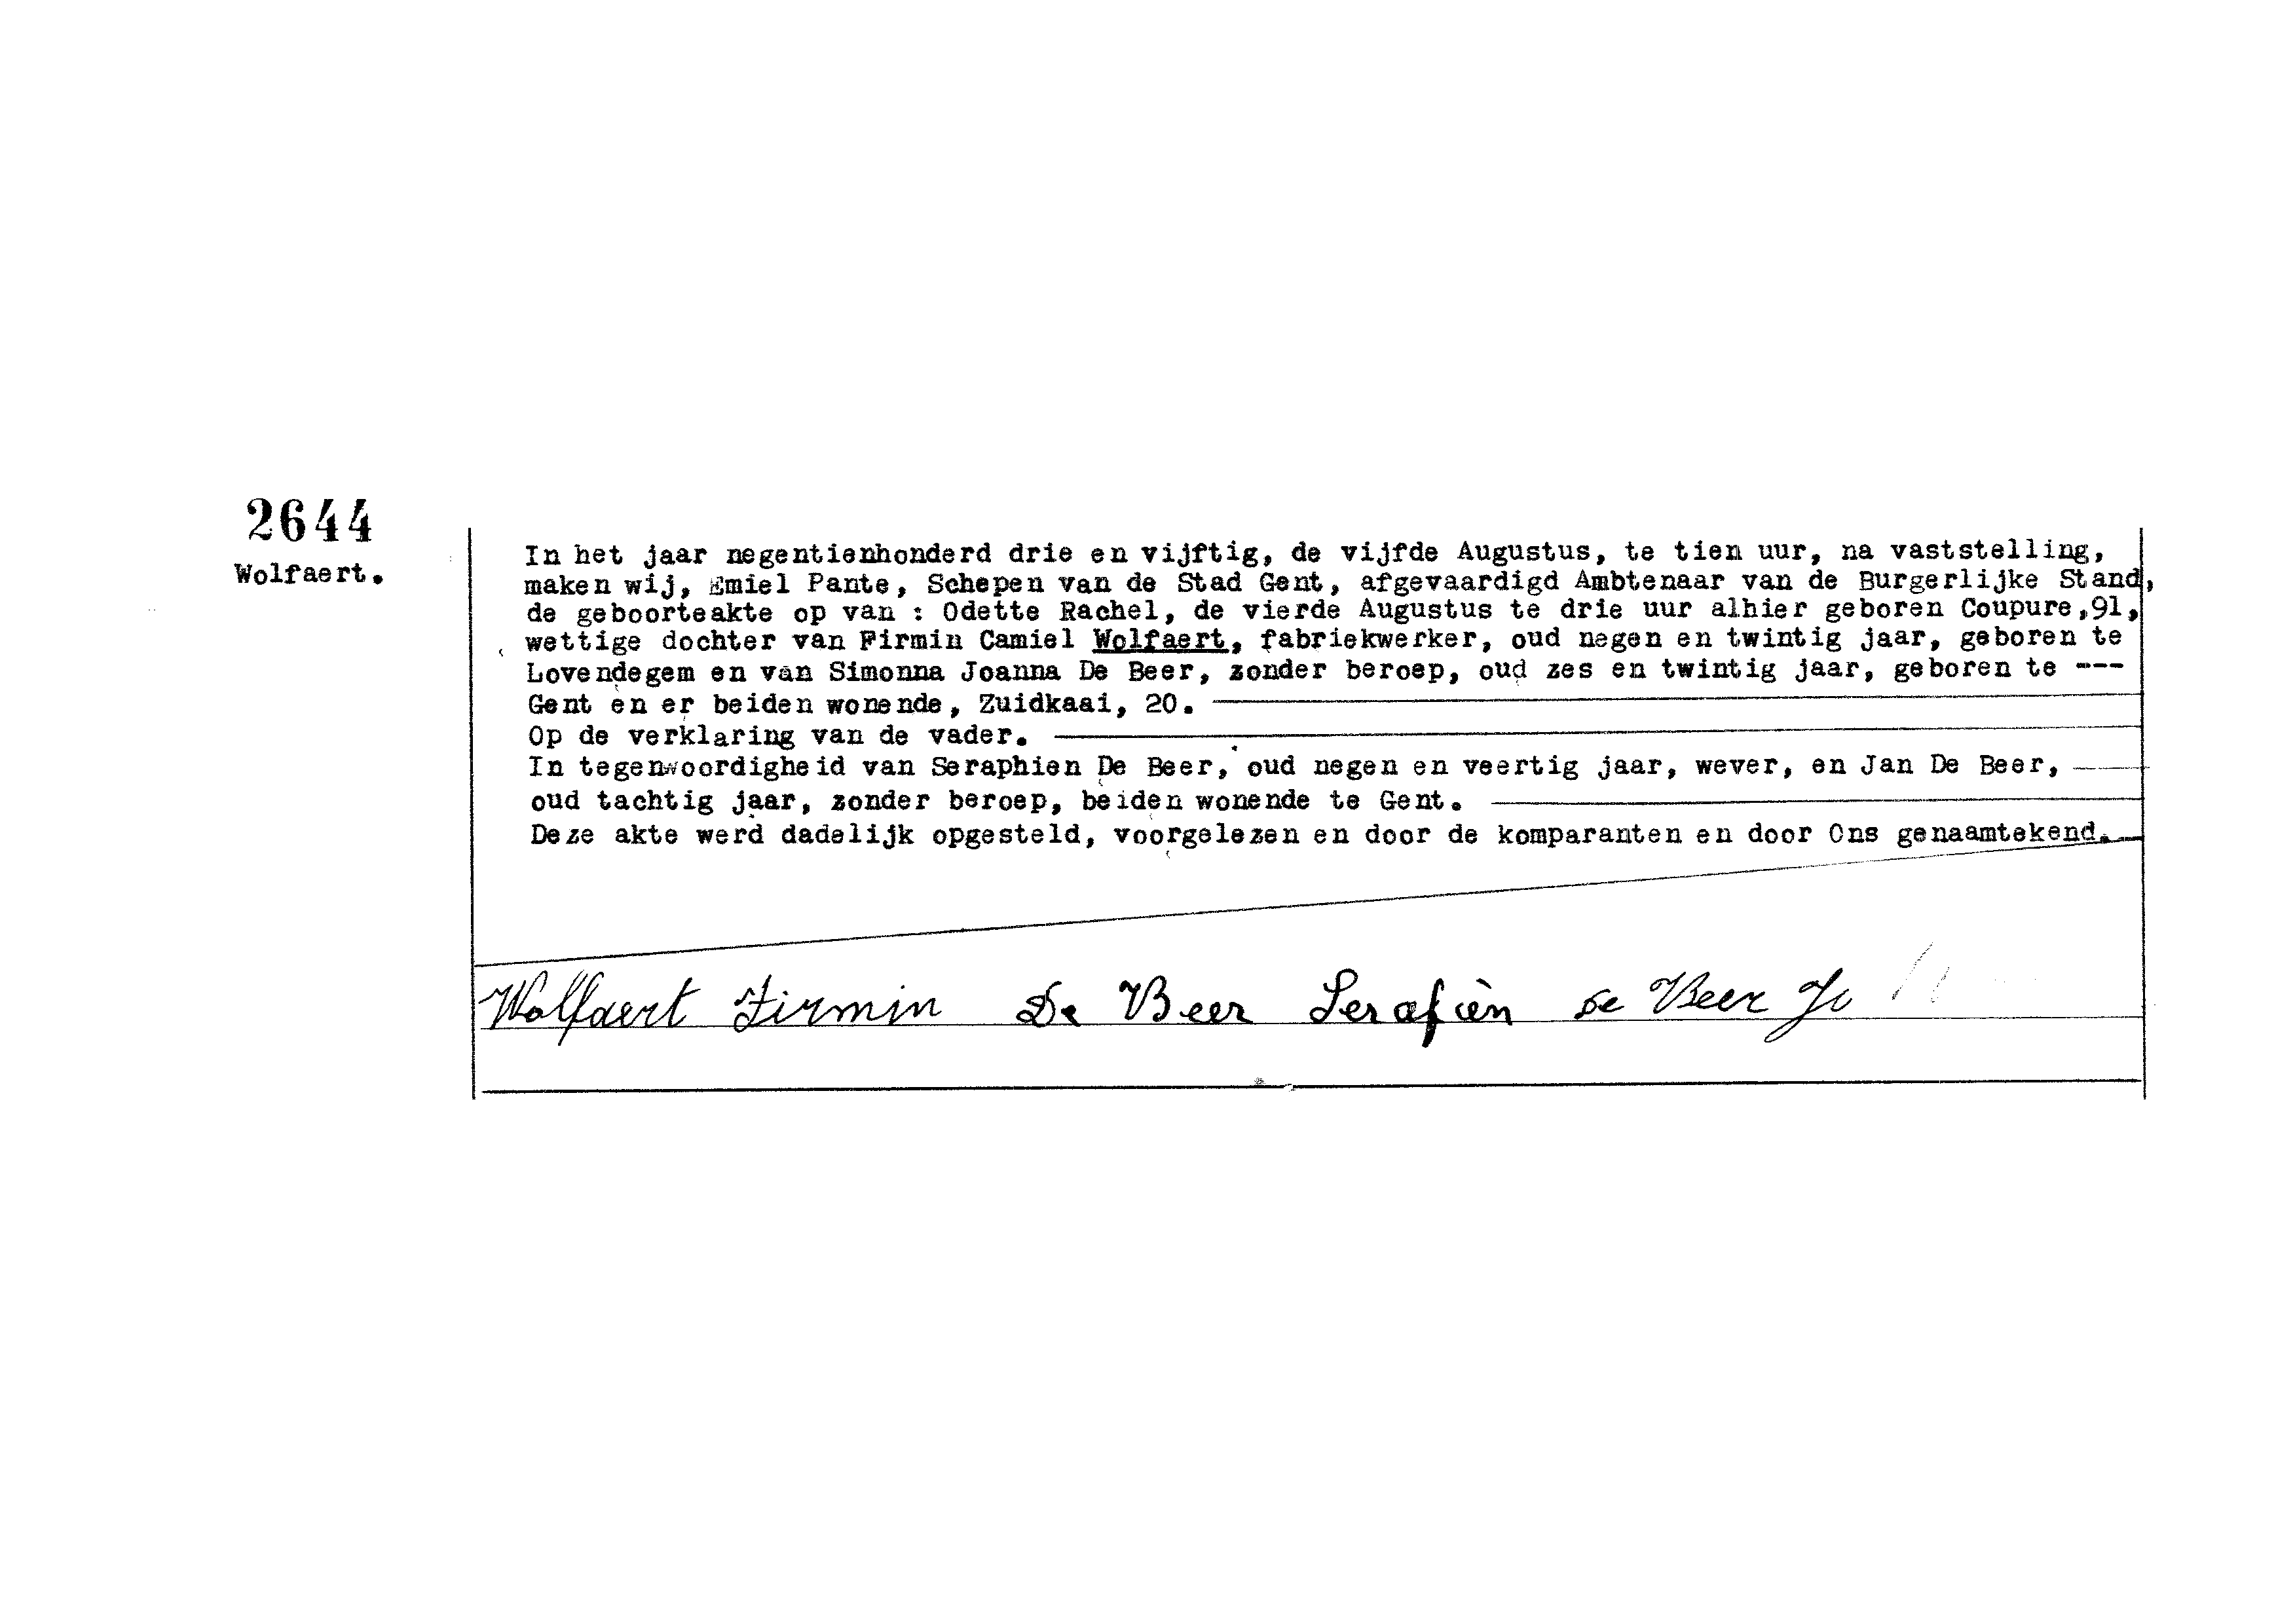 2644
Wolfaert.
In het jaar negentienhonderd drie en vijftig, de vijfde Augustus, te tien uur, na vaststelling,
maken wij, Emiel Pante, Schepen van de Stad Gent, afgevaardigd Ambtenaar van de Burgerlijke Stand,
de geboorteakte op van : Odette Rachel, de vierde Augustus te drie uur alhier geboren Coupure,91,
wettige dochter van Firmin Camiel Wolfaert, fabriekwerker, oud negen en twintig jaar, geboren te
Lovendegem en van Simonna Joanna De Beer, zonder beroep, oud zes en twintig jaar, geboren te ---
Gent en er beiden wonende, Zuidkaai, 20.
Op de verklaring van de vader.
In tegenwoordigheid van Seraphien De Beer, oud negen en veertig jaar, wever, en Jan De Beer,
oud tachtig jaar, zonder beroep, beiden wonende te Gent.
Deze akte werd dadelijk opgesteld, voorgelezen en door de komparanten en door Ons genaamtekend.
Wolfaert Firmin De Beer Serafien De Beer